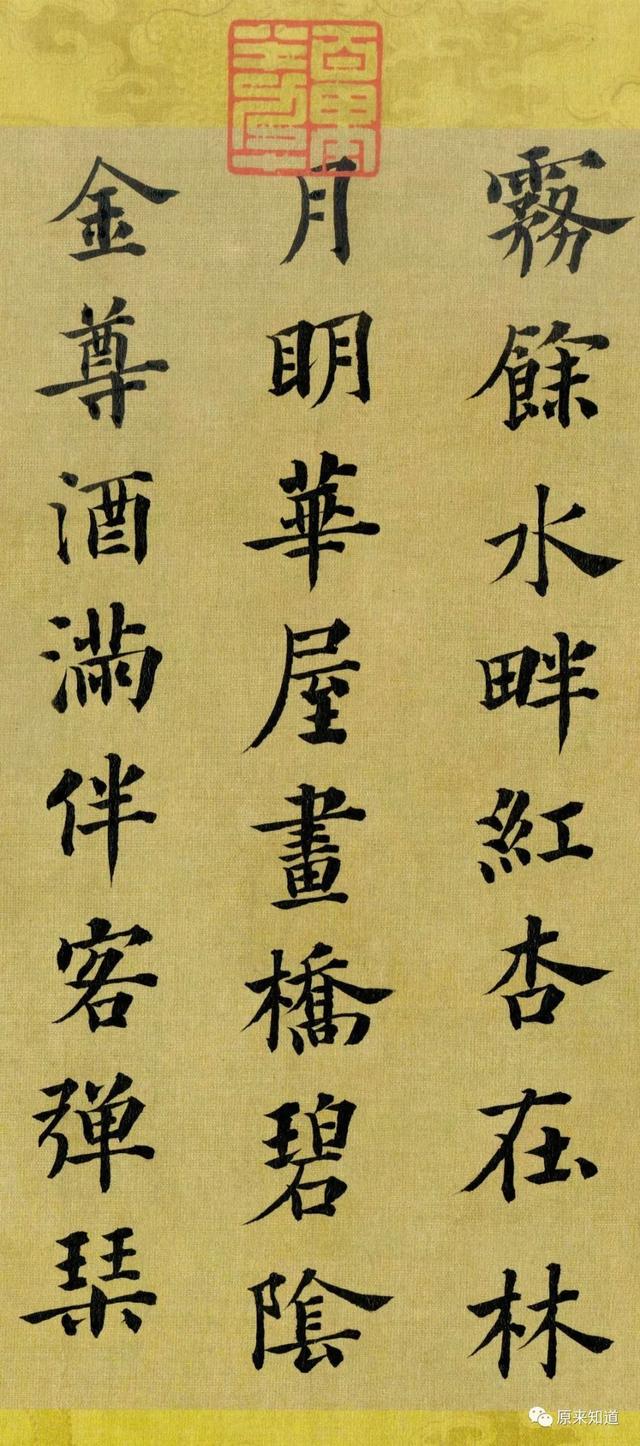 霧餘水畔紅杏在林
月明華屋畫橋碧陰
金尊酒滿伴客彈琹
原来知道